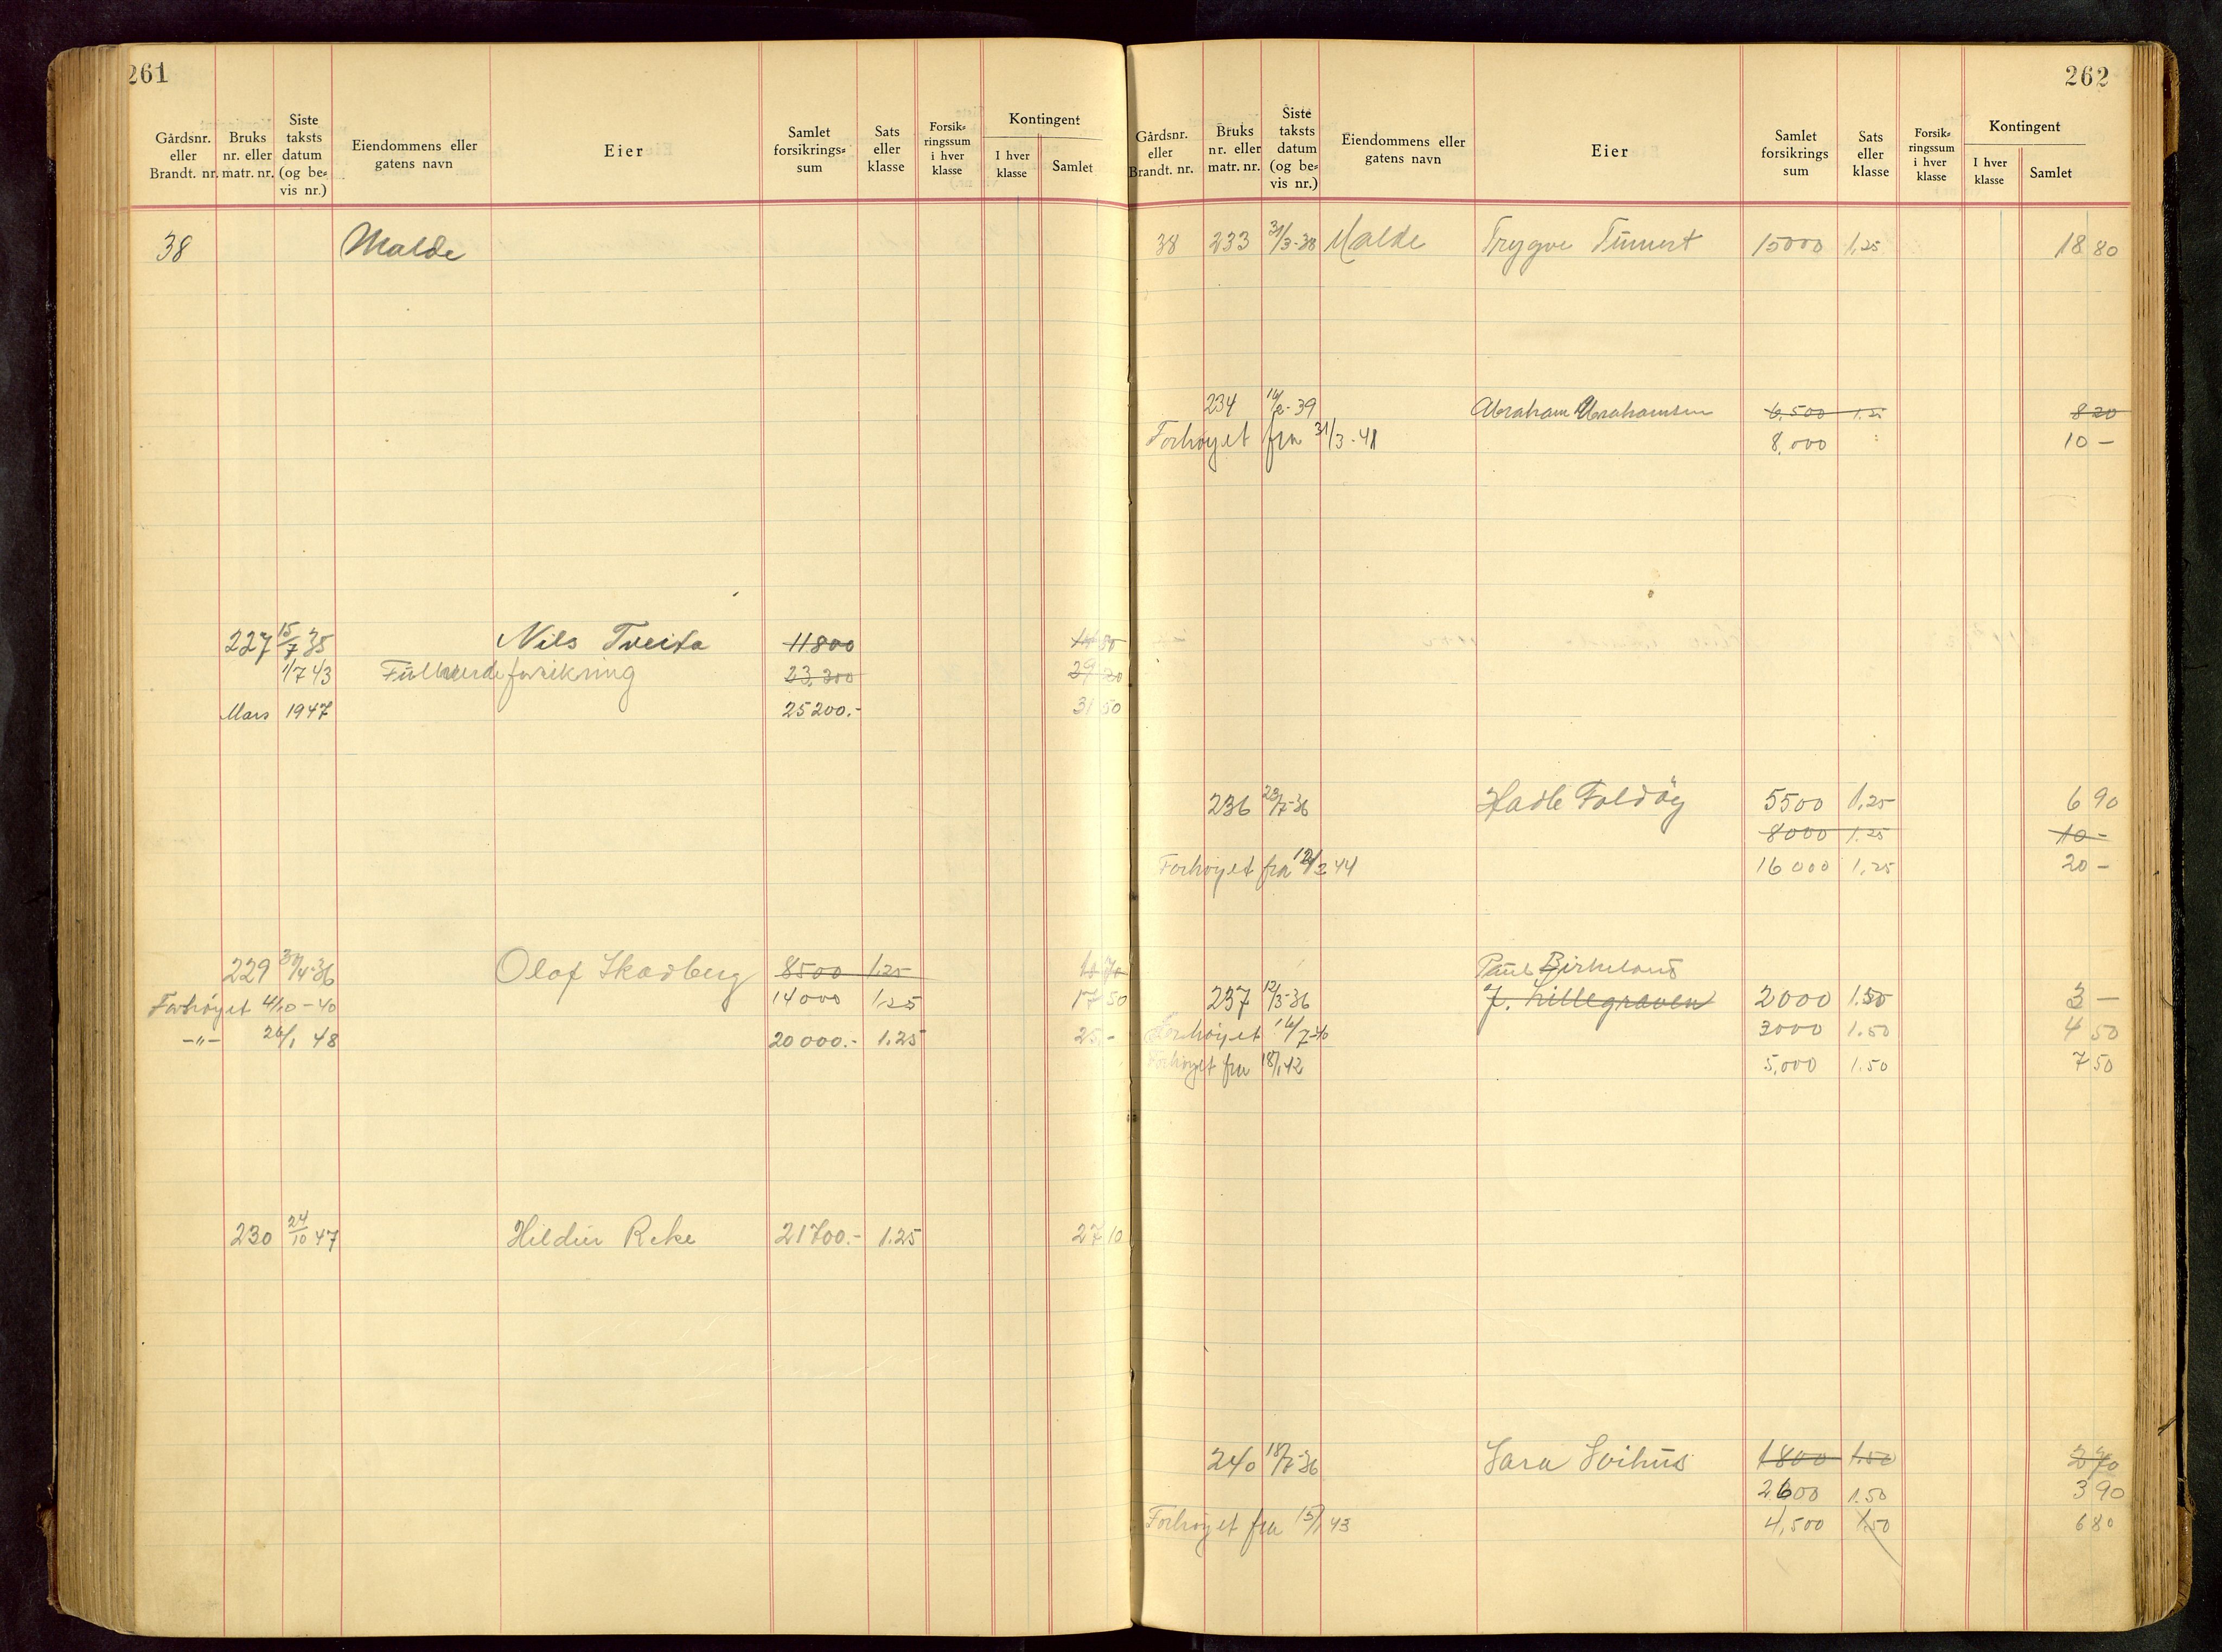 261
Gårdsnr. eller Brandt. nr. Bruks nr. eller matr. nr. Siste taksts datum (og be= vis nr.) Eiendommens eller gatens navn Eier Samlet forsikrings= sum Sats eller klasse Forsik= ringssum i hver klasse Kontingent I hver klasse Samlet
38 Malde
227 15/7 35 Nils Tveita 11800
1/7 43 forsikring 23.300 29
Mars 1947 25200.- 31 50
229 30/4-36 Olaf Skadberg 8500 1.25 10 70
Forhøyet 4/10-40 14000 1.25 17 50
-"- 26/1 48 20000.- 1.25 25.-
230 24/10 47 Hildur Reke 21700.- 1.25 27 10
262
Gårdsnr. eller Brandt. nr. Bruks nr. eller matr. nr. Siste taksts datum (og be= vis nr.) Eiendommens eller gatens navn Eier Samlet forsikrings sum Sats eller klasse Forsik= ringssum i hver klasse Kontingent I hver klasse Samlet
38 233 31/3-38 Malde Trygve 15000 1,25 18 80
234 39 Abraham Abrahamsen 6,500 1.25 8 20
Forhøyet fra 31/3-41 8,000 10 -
236 36 Hadle Foldøy 5500 1,25 6 90
8000 1.25 10 -
Forhøyet fra 44 16000 1,25 20 -
Paul Birkeland
237 12/5-36 J. Lillegraven 2000 1.50 3 -
Forhøyet 16/7-40 3000 1.50 4 50
Forhøyet fra 18/1 42 5,000 1.50 7 50
240 36 Sara Svihus 1800 1.50 2 70
2600 1.50 3 90
Forhøyet fra 15/1 43 4,500 1.50 6 80